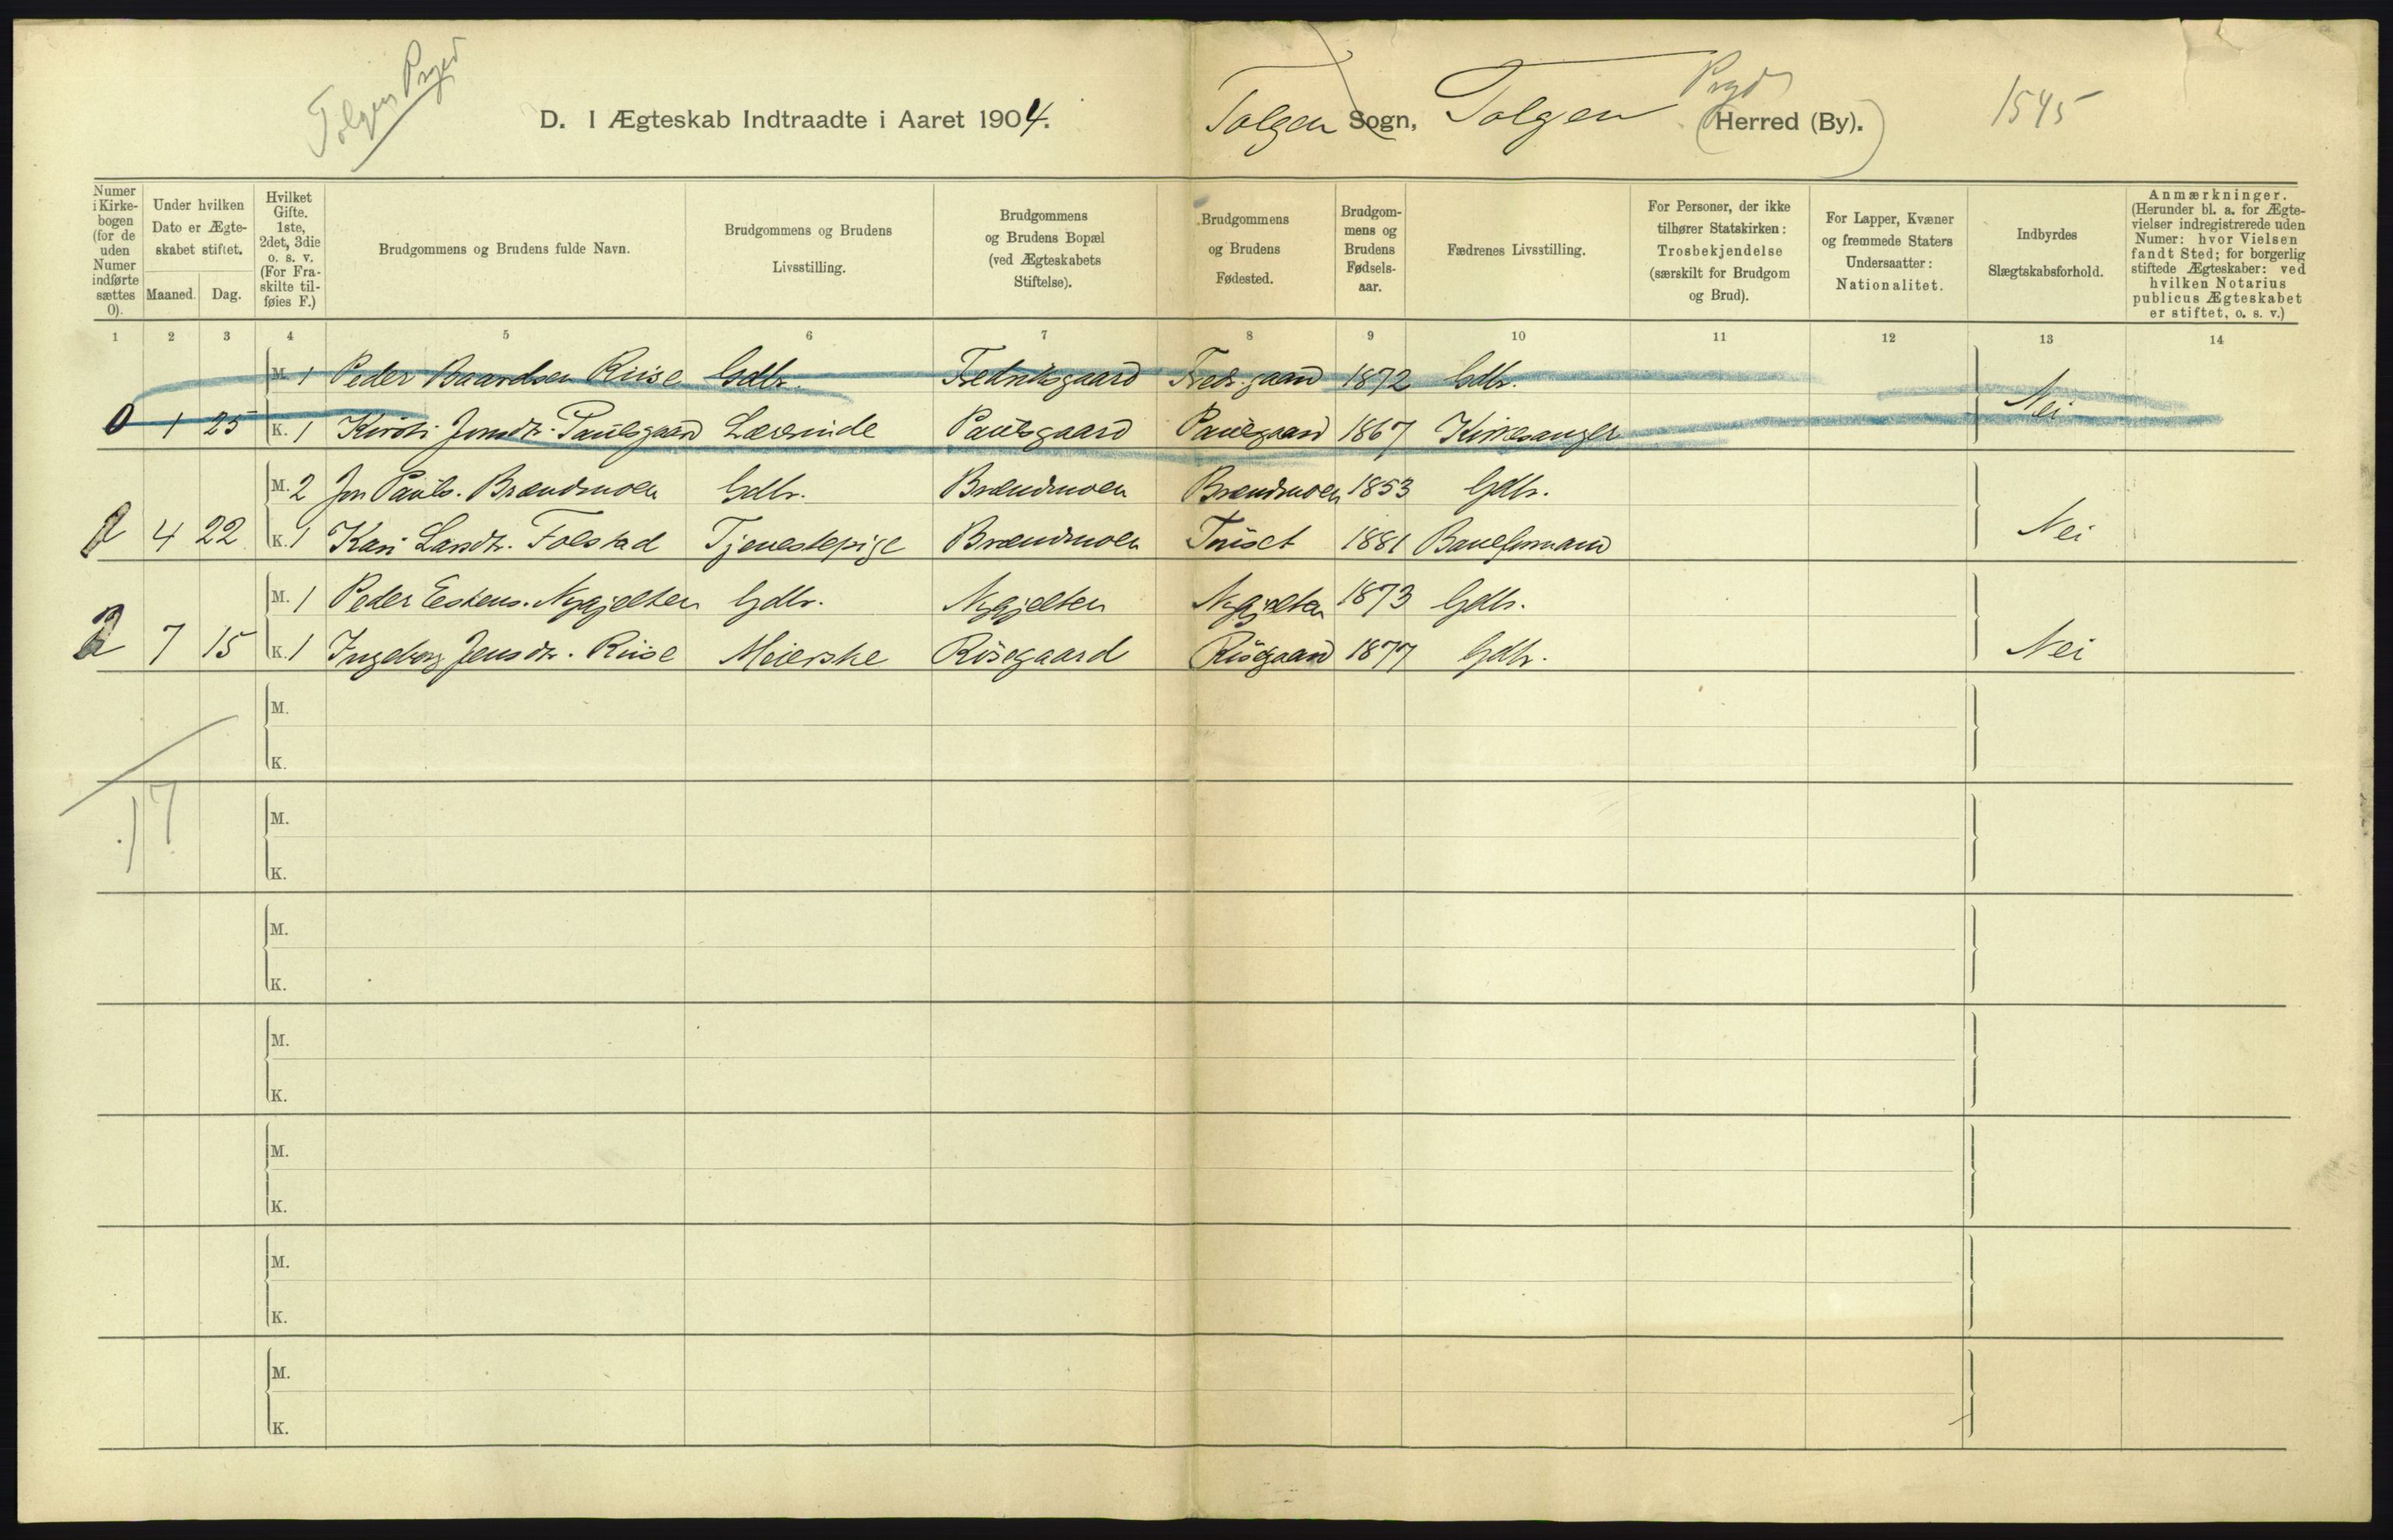 Tolgen Prgd
D. I Ægteskab Indtraadte i Aaret 1904. Tolgen Sogn, Tolgen Prgd (Herred (By).) 1545
Numer i Kirkebogen (for de uden Numer indførte sættes 0).
Under hvilken Dato er Ægteskabet stiftet.
Maaned. Dag.
Hvilket Gifte. 1ste, 2det, 3die o. s. v. (For Fraskilte tilføies F.)
Brudgommens og Brudens fulde Navn.
Brudgommens og Brudens Livsstilling.
Brudgommens og Brudens Bopæl (ved Ægteskabets Stiftelse).
Brudgommens og Brudens Fødested.
Brudgommens og Brudens Fødselsaar.
Fædrenes Livsstilling.
For Personer, der ikke tilhører Statskirken: Trosbekjendelse (særskilt for Brudgom og Brud).
For Lapper, Kvæner og fremmede Staters Undersaatter: Nationalitet.
Indbyrdes Slægtskabsforhold.
Anmærkninger. (Herunder bl. a. for Ægtevielser indregistrerede uden Numer: hvor Vielsen fandt Sted; for borgerlig stiftede Ægteskaber: ved hvilken Notarius publicus Ægteskabet er stiftet, o. s. v.)
1 2 3 4 5 6 7 8 9 10 11 12 13 14
M. 1 Peder Baardsen Riise Gdbr. Fredriksgaard Fredr.gaard 1872 Gdbr.
0 1 25 K. 1 Kirsti Jonsdtr. Paulsgaard Lærerinde Paulsgaard Paulsgaard 1867 Kirkesanger Nei
M. 2 Jon Pauls. Brændmoen Gdbr. Brændmoen Brændmoen 1853 Gdbr.
1 4 22 K. 1 Kari Larsdtr. Folstad Tjenestepige Brændmoen Tuiset 1881 Baneformand Nei
M. 1 Peder Estens. Nygjelten Gdbr. Nygjelten Nygjelten 1873 Gdbr.
2 7 15 K. 1 Ingeborg Jensdtr. Riise Meierske Risegaard Risegaard 1877 Gdbr. Nei
M.
K.
17
M.
K.
M.
K.
M.
K.
M.
K.
M.
K.
M.
K.